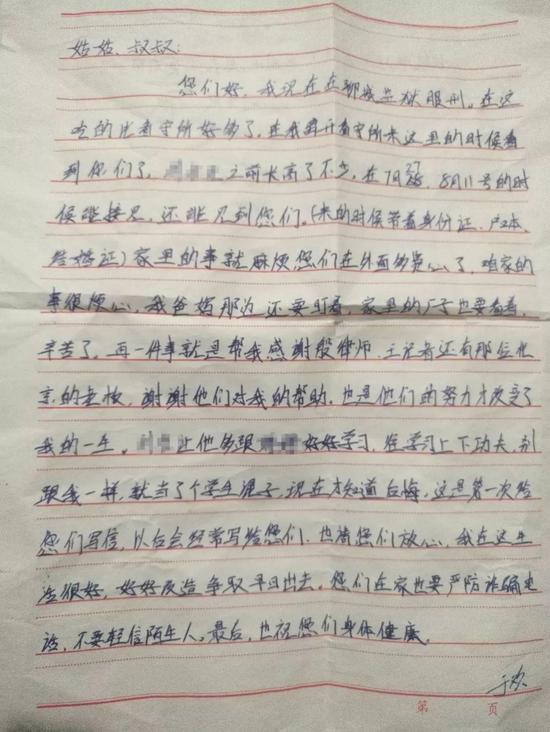 姑姑、叔叔:
您们好，我现在在聊城监狱服刑，在这
吃的比看守所好多了，在我离开看守所来这里的时候看
到你们了，之前长高了不少，在7月27、8月11号的时
候能接见，还能见到您们。(来的时候带着身份证、户口本、
结婚证)家里的事就麻烦您们在外面多费心了，咱家的
事很烦心，我爸妈那边还要盯着，家里的厂子也要看着，
辛苦了，再一件事就是帮我感谢殷律师、王记者还有那位北
京的，谢谢他们对我的帮助，也是他们的努力才改变了
我的一生。让他多跟好好学习，在学习上下功夫，别
跟我一样，就当了个学生混子，现在才知道后悔，这是第一次给
您们写信，以后会经常写给您们，也请您们放心，我在这生
活很好，好好改造争取早日出去，您们在家也要严防诈骗电
话，不要轻信陌生人。最后，也祝您们身体健康。
于欢
第 页